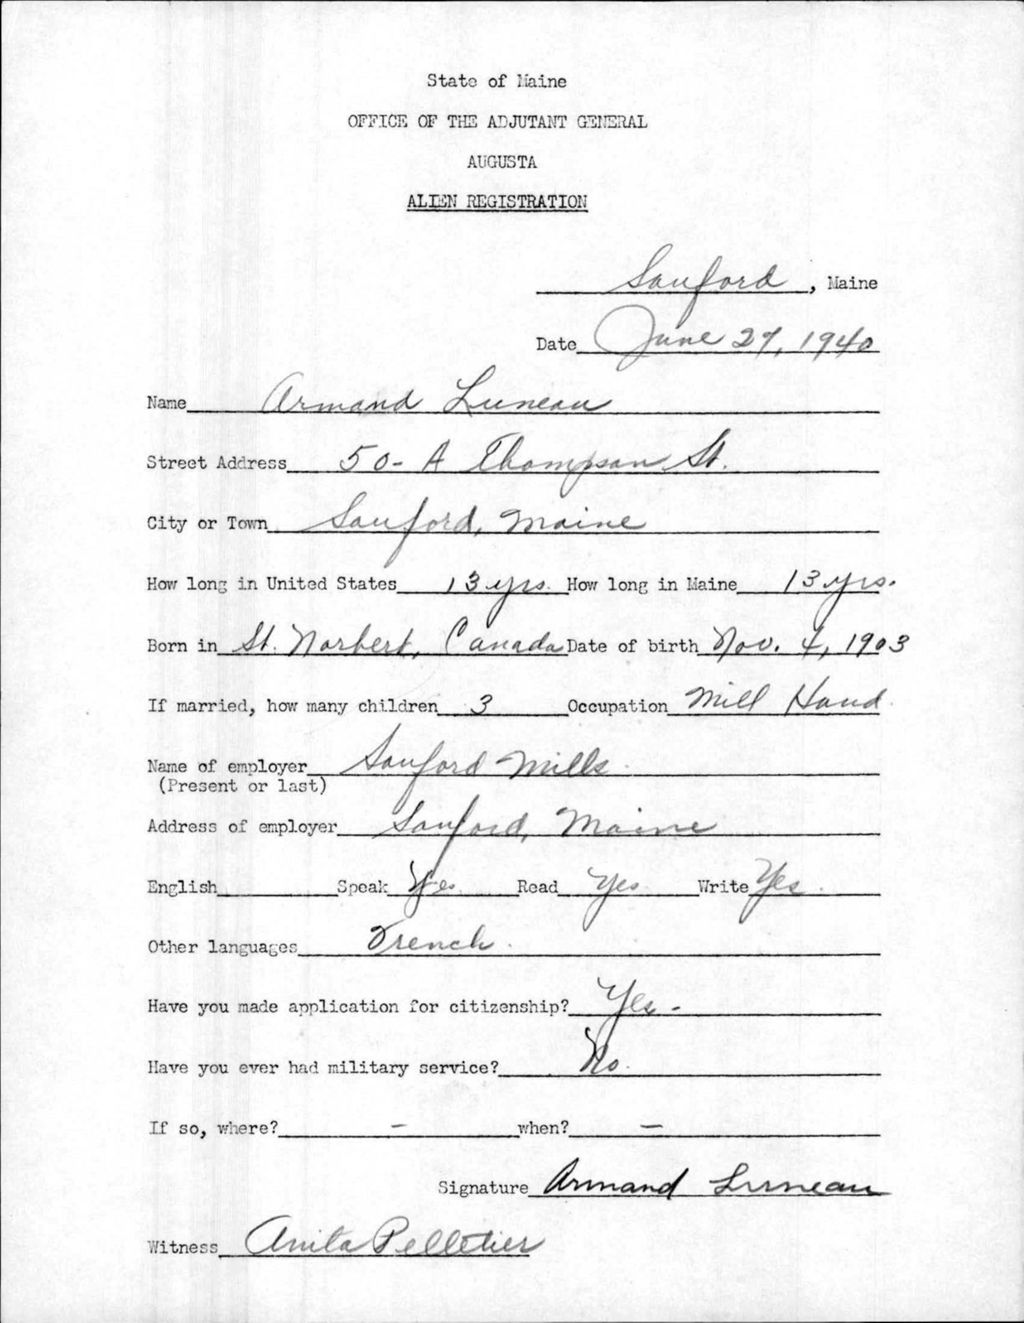 State of Maine
OFFICE OF THE ADJUTANT GENERAL
AUGUSTA
ALIEN REGISTRATION
Sanford, Maine
Date June 27, 1940
Name Armand Luneau
Street Address 50-A Thompson St.
City or Town Sanford, Maine
How long in United States 13 yrs. How long in Maine 13 yrs.
Born in St. Norbert, Canada Date of birth Nov. 4, 1903
If married, how many children 3 Occupation Mill Hand
Name of employer Sanford Mills
(Present or last)
Address of employer Sanford, Maine
English Speak Yes. Read Yes. Write Yes.
Other languages French.
Have you made application for citizenship? Yes -
Have you ever had military service? No.
If so, where? - when? -
Signature Armand Luneau
Witness Anita Pelletier